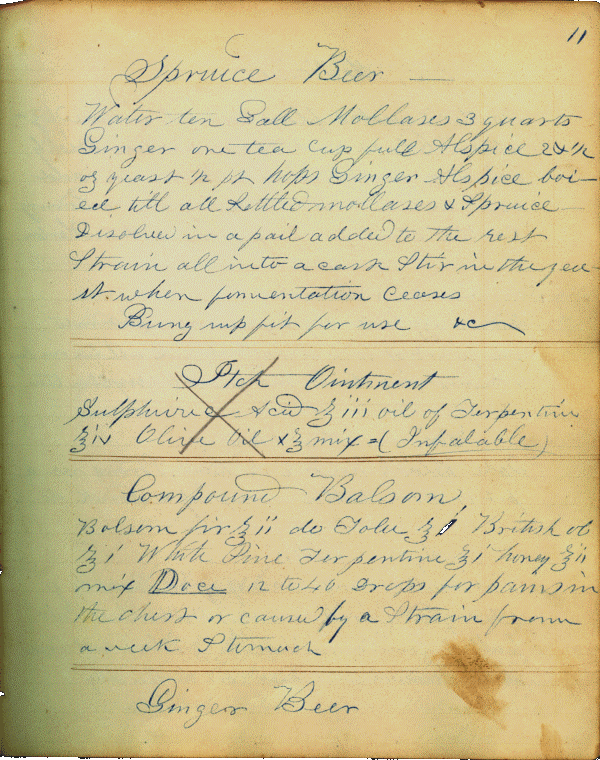 11
Spruice Beer
Water ten Gall Mollases 3 quarts
Ginger one tea cup full Alspice 2 & ½
oz yeast ½ pt hops Ginger Alspice boi-
ed till all Settled mollases & Spruice
Disolved in a pail added to the rest
Strain all into a cask Stir in the yea-
st. when fermentation ceases
Bung up fit for use &c
Itch Ointment
Sulphuric Acid ℥iii oil of Terpentine
℥iv Olive Oil ℥ mix = (Infalable)
Compound Balsom
Bolsom fir ℥ii do Tolu ℥i British
℥i White Pine Terpentine ℥i honey ℥ii
mix Doce 12 to 40 Drops for pains in
the chest or caused by a Strain from
a week Stomach
Ginger Beer